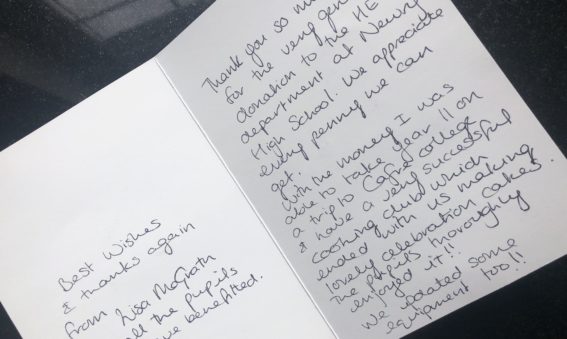 Thank you so mu
for the very gen
donation to the HE
department at Newry
High School. We appreciate
every penny we can
get.
With the money I was
able to take year 11 on
a trip to Cafre college
& have a very successful
cooking club which
ended with us making
lovely celebration cakes.
The pupils thoroughly
enjoyed it!!
We updated some
equipment too!!
Best Wishes
& thanks again
from Lisa McGrath
all the pupils
ve benefited.